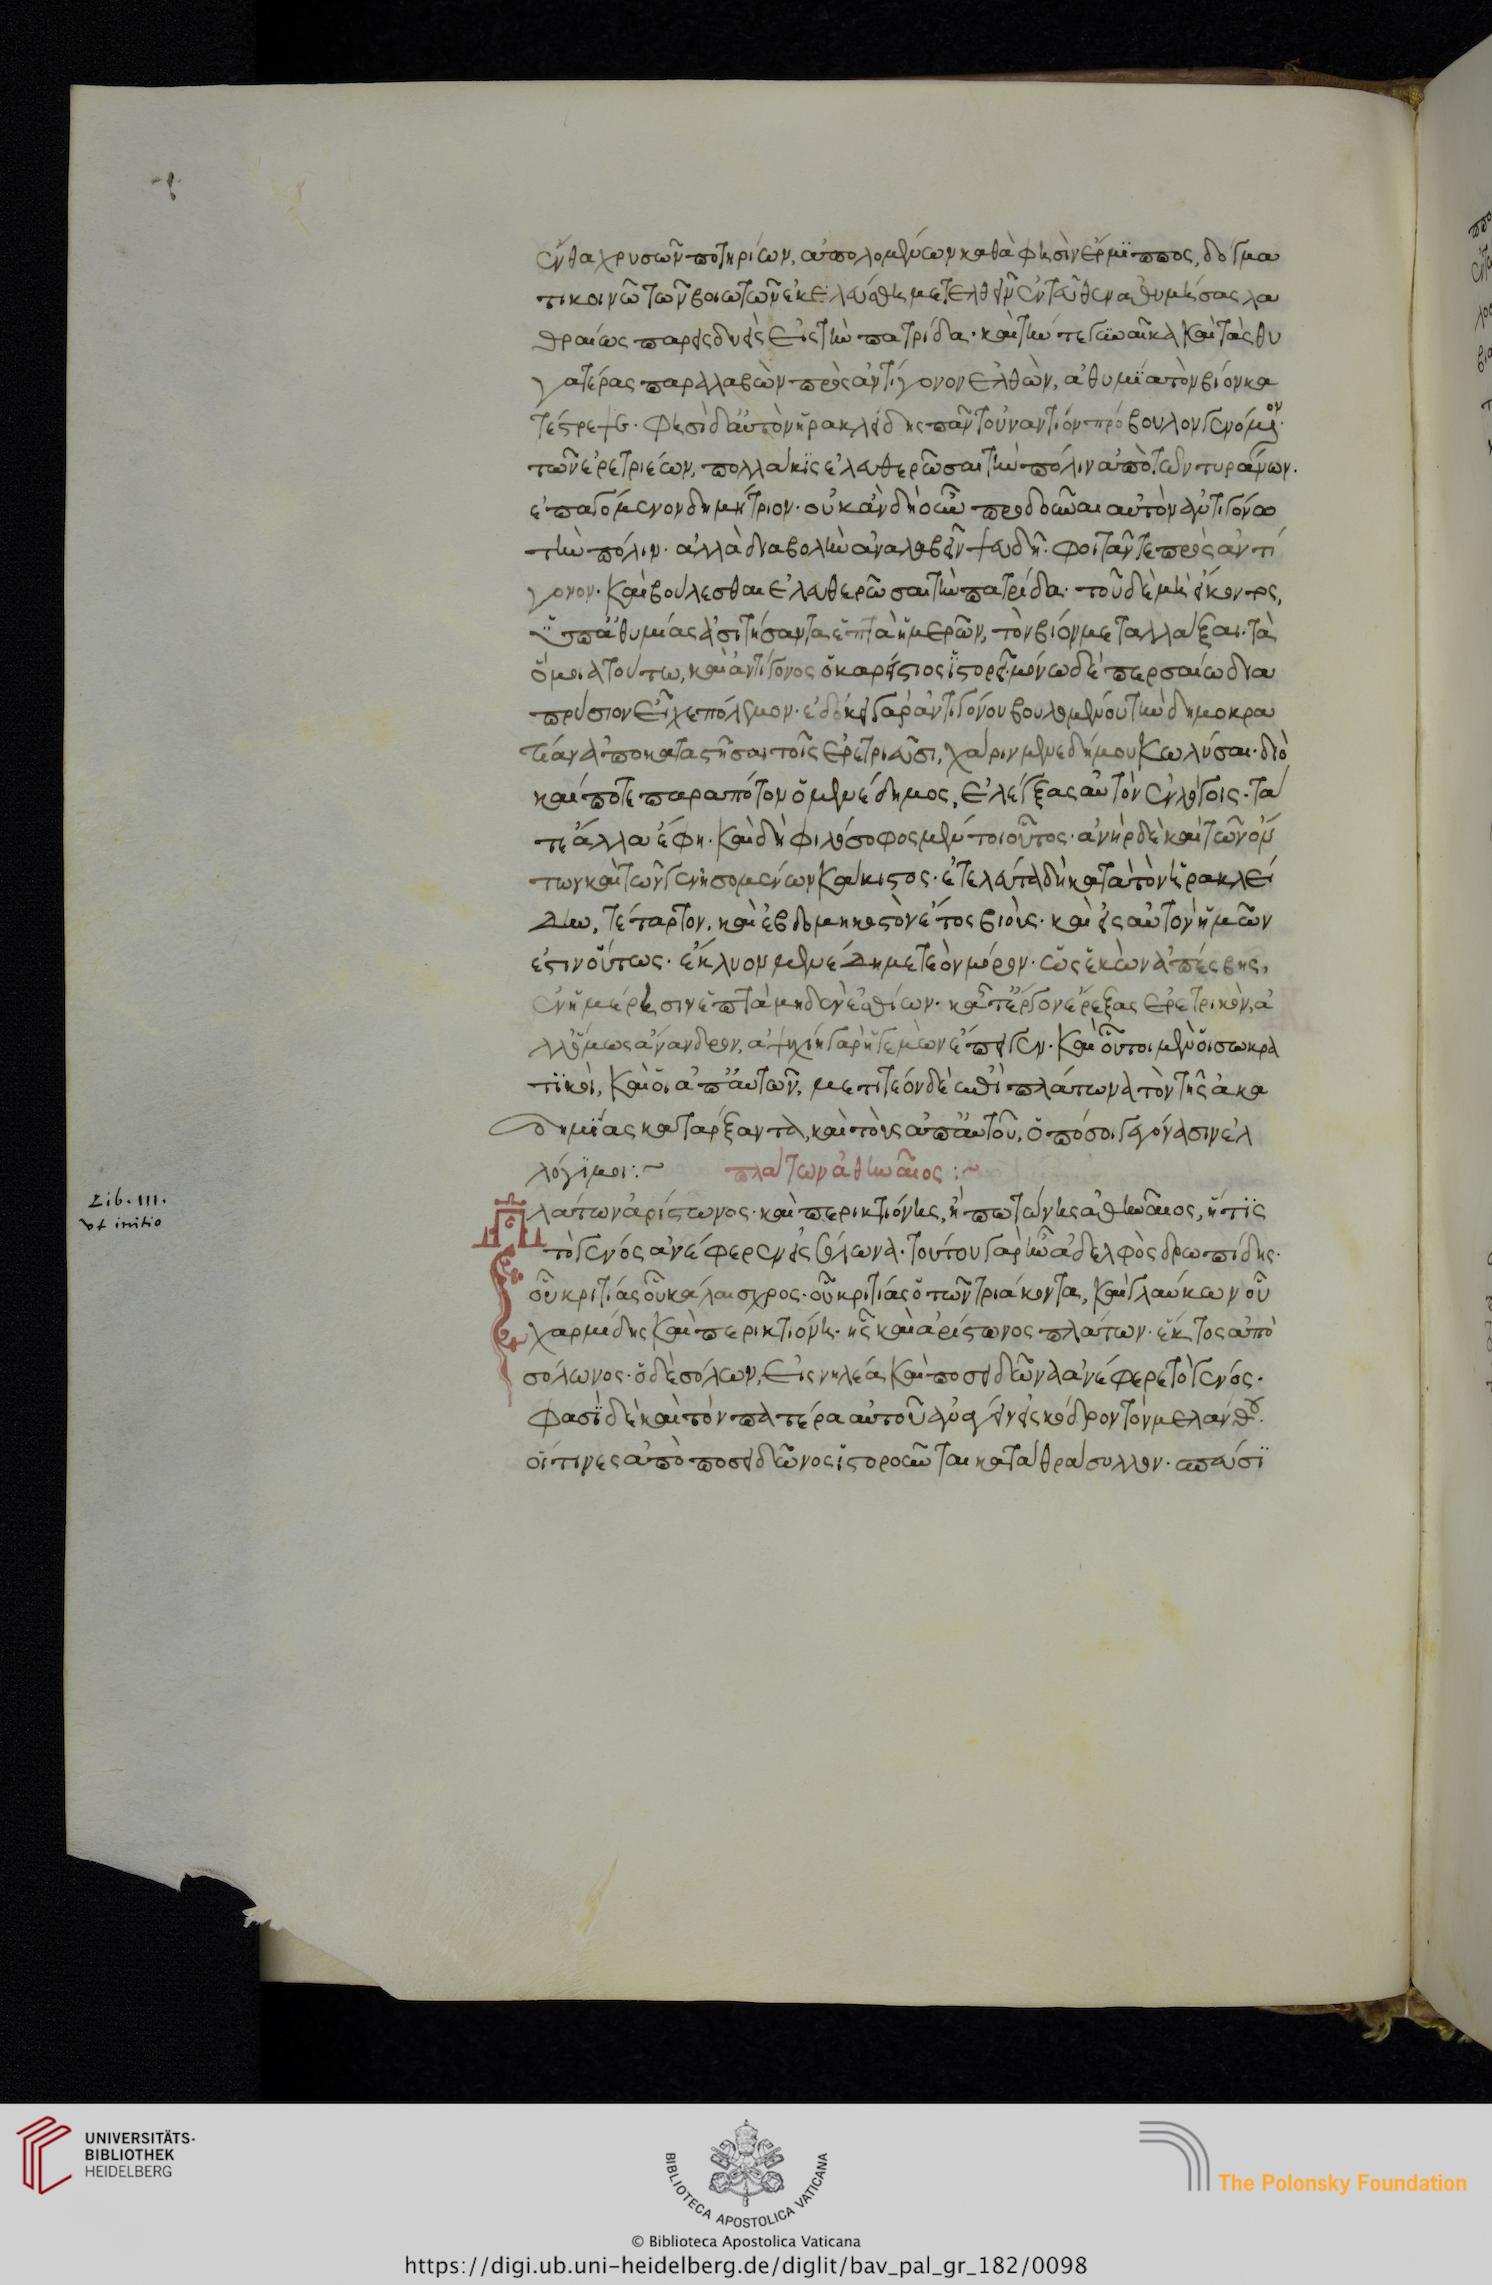 ἔνθα χρυσῶν ποτηρίων, ἀπολομένων καθὰ φησὶν ἕρμιππος, δόγμα
τι κοινῶ τῶν βοιωτῶν ἐκελεύσθη μετελθεῖν ἐντεῦθεν ἀθυμήσας λα
θραίως παρεισδυεὶς εἰς τὴν πατρίδα· καὶ τήν τε γυναῖκα καὶ τὰς θυ
γατέρας παραλαβὼν πρὸς ἀντίγονον ἐλθὼν, ἀθυμία τὸν βίον κα
τέστρεψε. φησὶ δ' αὐτὸν ἡρακλείδης πᾶν τοὐναντίον πρόβουλον γενόμενον·
τῶν ἐρετριέων, πολλάκις ἐλευθερῶσαι τὴν πόλιν ἀπὸ τῶν τυράννων.
ἐπαγόμενον δημήτριον· οὐκ ἂν δὴ οὖν προδοῦναι αὐτὸν ἀντιγόνω
τὴν πόλιν. ἀλλὰ διαβολὴν ἀναλαβεῖν ψευδῆ. φοιτᾶν τε πρὸς ἀντί
γονον. καὶ βούλεσθαι ἐλευθερῶσαι τὴν πατρίδα. τοῦ δὲ μὴ εἴκοντος,
ὑπ' ἀθυμίας ἀσιτήσαντα ἑπτὰ ἡμερῶν, τὸν βίον μεταλλάξαι. τὰ
ὅμοια τούτω, καὶ ἀντίγονος ὁ καρύστιος ἱστορεῖ. μόνω δὲ περσαίω δια
πρύσιον εἶχε πόλεμον. ἐδόκει γὰρ ἀντιγόνου βουλομένου τὴν δημοκρα
τίαν ἀποκαταστῆσαι τοῖς ἐρετριεῦσι, χάριν μενεδήμου κωλῦσαι. διὸ
καί ποτε παρὰ πότον ὁ μενέδημος, ἐλέγξας αὐτὸν ἐν λόγοις. τά
τε ἄλλα ἔφη. καὶ δὴ φιλόσοφος μὲν τοιοῦτος. ἀνὴρ δὲ καὶ τῶν ὄν
των καὶ τῶν γενησομένων κάκιστος. ἐτελεύτα δὴ κατὰ τὸν ἡρακλεί
δην, τέταρτον, καὶ ἑβδομηκοστὸν ἔτος βιούς. καὶ εἰς αὐτὸν ἡμῶν
ἐστιν οὕτως. ἔκλυον μενέδημε τεὸν μόρον. ὡς ἑκὼν ἀπέσβης,
ἐν ἡμέρησιν ἑπτὰ μηδὲν ἐσθίων. κᾆτ' ἔργον ἔρεξας ἐρετρικόν, ἀ
λλ' ὅμως ἄνανδρον, ἀψυχίη γὰρ ἡγεμὼν ἔπειγεν. καὶ οὗτοι μὲν οἱ σωκρα
τικοὶ, καὶ οἱ ἀπ' αὐτῶν, μετιτέον δὲ ἐπὶ πλάτωνα τὸν τῆς ἀκα
δημίας κατάρξαντα, καὶ τοὺς ἀπ' αὐτοῦ, ὁπόσοι γεγόνασιν ἐλ
λόγιμοι :~ πλάτων ἀθηναῖος :~
Πλάτων ἀρίστωνος. καὶ περικτιόνης, ἢ πωτώνης ἀθηναῖος, ἥτις
τὸ γένος ἀνέφερεν εἰς σόλωνα. τούτου γὰρ ἦν ἀδελφὸς δρωπίδης.
οὗ κριτίας οὗ κάλαισχρος. οὗ κριτίας ὁ τῶν τριάκοντα, καὶ γλαύκων οὗ
χαρμίδης καὶ περικτιόνη. ἧς καὶ ἀρίστωνος πλάτων. ἕκτος ἀπὸ
σόλωνος. ὁ δὲ σόλων, εἰς νηλέα καὶ ποσειδῶνα ἀνέφερε τὸ γένος.
φασὶ δὲ καὶ τὸν πατέρα αὐτοῦ ἀνάγειν εἰς κόδρον τὸν μελάνθου.
οἵτινες ἀπὸ ποσειδῶνος ἱστοροῦνται κατὰ θράσυλλον. σπεύσι
Lib. III.
ut initio
UNIVERSITÄTS-
BIBLIOTHEK
HEIDELBERG
BIBLIOTECA APOSTOLICA VATICANA
The Polonsky Foundation
© Biblioteca Apostolica Vaticana
https://digi.ub.uni-heidelberg.de/diglit/bav_pal_gr_182/0098